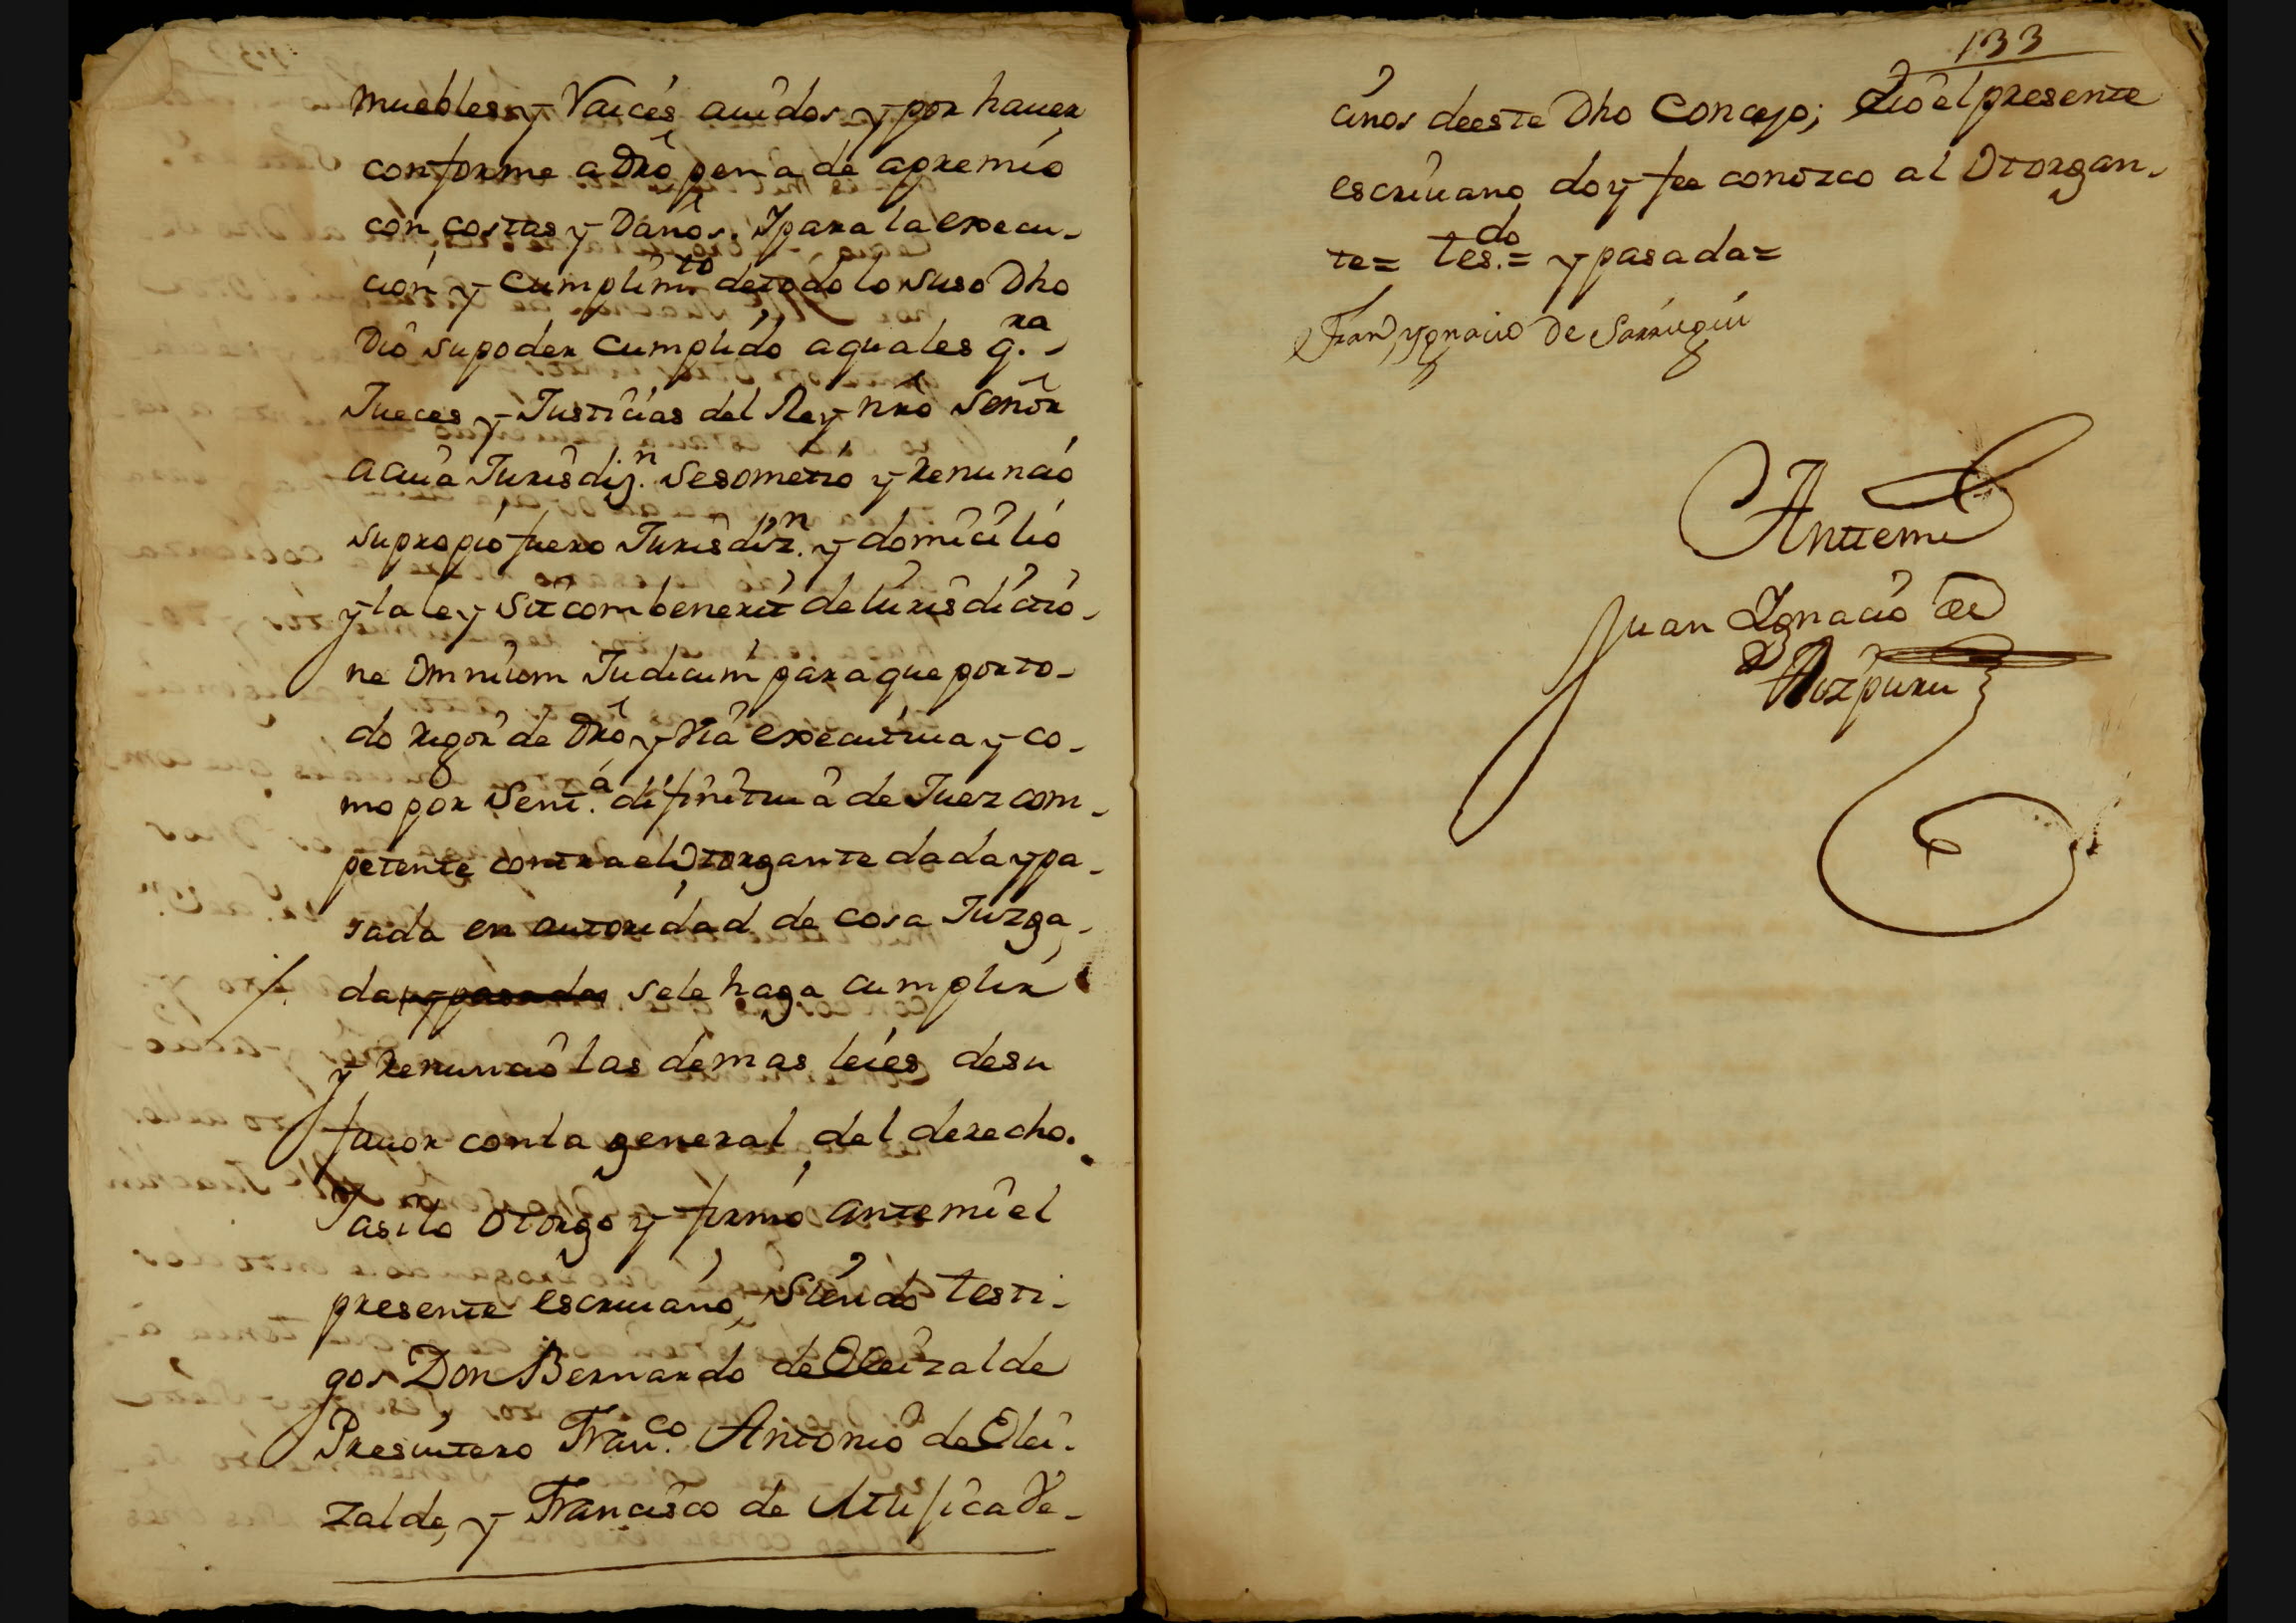 muebles y Raices auidos y por hauer
conforme a Dro pena de apremio
con costas y Daños. Y para la execu-
cion y Cumplimto de todo lo suso Dho
Dio su poder Cumplido a quales q.ra
Jueces y Justicias del Rey nro señor
a cuia Jurisdiz.n se sometio y Renuncio
su propio fuero Jurisdiz.n y domicilio
y la ley sit combenerit de iurisdictio-
ne omnium Judicum para que por to-
do rigor de Dro y Via executiua y co-
mo por Sent.a difinitiua de Juez com-
petente contra el otorgante dada y pa-
sada en autoridad de cosa Juzga-
da y pasada se le haga cumplir
y Renuncio las demas leies de su
fauor con la general del derecho.
Y asi lo otorgo y firmo ante mi el
presente escriuano, siendo testi-
gos Don Bernardo de Oleizalde
Presuitero Fran.co Antonio de Olei-
zalde, y Francisco de Ve-
133
cinos de este Dho Concejo; Yo el presente
escriuano doy fee conozco al Otorgan-
te= tes.do= y pasada=
Fran, Ygnacio De Sarrugui
Antemi
Juan Ignacio de
Aizpuru